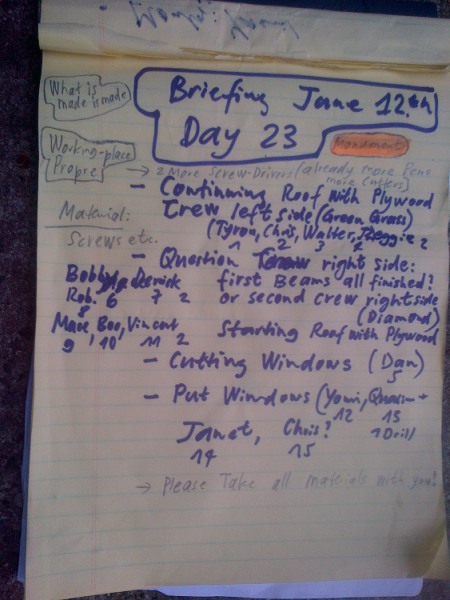 What is
made is made
Briefing June 12.th
Day 23
Working-place
Propre
Monuments
→ 2 More Screw-Drivers (already more Pens
more Cutters)
- Continuing Roof with Plywood
Material:
Crew left side (Green Grass)
(Tyron, Chris, Walter, Reggie 2
1 2 3 4
Screws etc.
- Question right side:
Bobby, Derrick
first Beams all finished?
Rob. 6 7 2
or second crew right side
8
(Diamond)
Mace, Boo, Vincent
Starting Roof with Plywood
9 10 11 2
- Cutting Windows (Dan)
5
- Put Windows (Yomi,
12 13
Janet, Chris? 1 Drill
14 15
→ Please Take all materials with you!